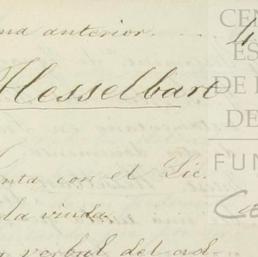 na anterior. 4
Hesselbart
nta con el Lic.
la viuda.
verbal del ad-
CEN
ES
DE
DE
FUN
Ca